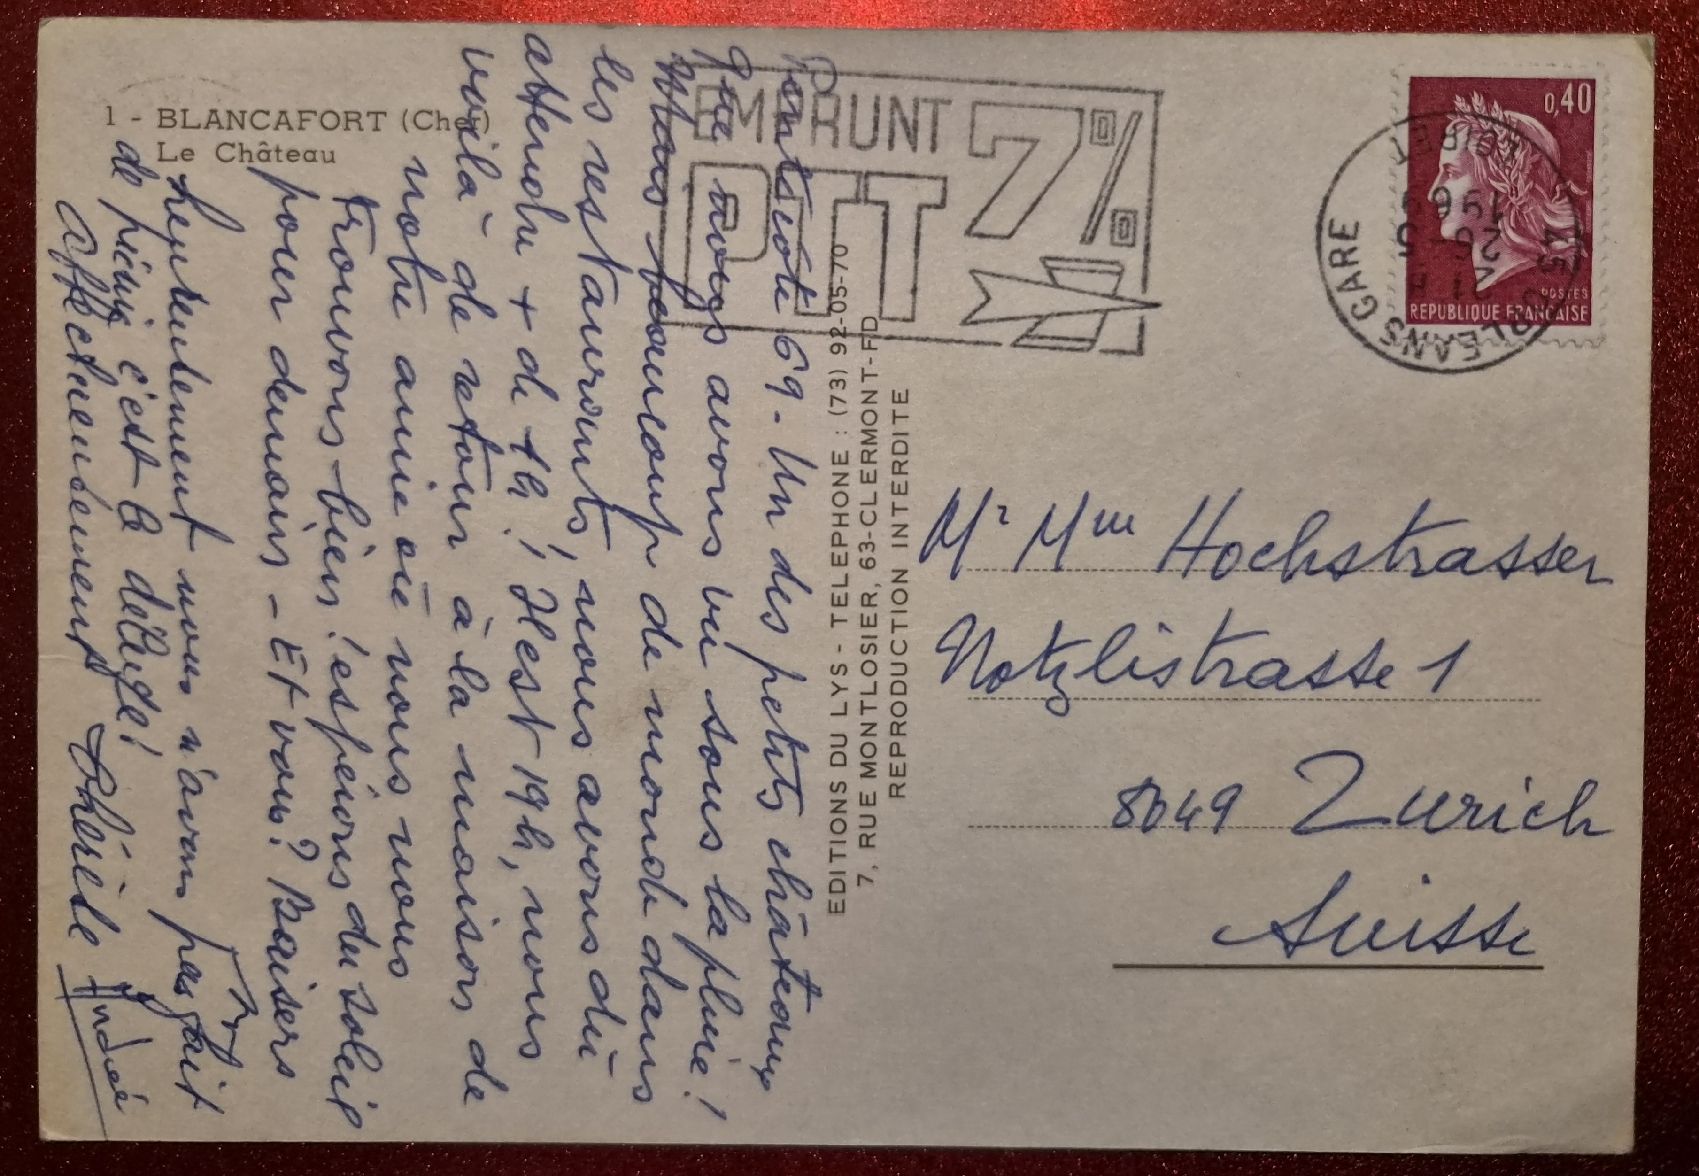 1 - BLANCAFORT (Cher)
Le Château
EMPRUNT
PTT
7%
0,40
POSTES
REPUBLIQUE FRANÇAISE
45 ORLEANS GARE
LOIRET
21 H
26-5
1969
Pentecôte 69. Un des petits châteaux
que nous avons vu sous la pluie!
Mais beaucoup de monde dans
les restaurants, nous avons dû
attendre + d' 1h! Il est 19h, nous
voilà de retour à la maison de
notre amie où nous nous
trouvons bien! espérons du soleil
pour demain - Et vous? Baisers
nous n'avons pas fait
de c'est le déluge!
Affectueusement
Andrée
EDITIONS DU LYS - TELEPHONE : (73) 92-05-70
7, RUE MONTLOSIER, 63-CLERMONT-FD
REPRODUCTION INTERDITE
Mr Mme Hochstrasser
Notzlistrasse 1
8049 Zurich
Suisse